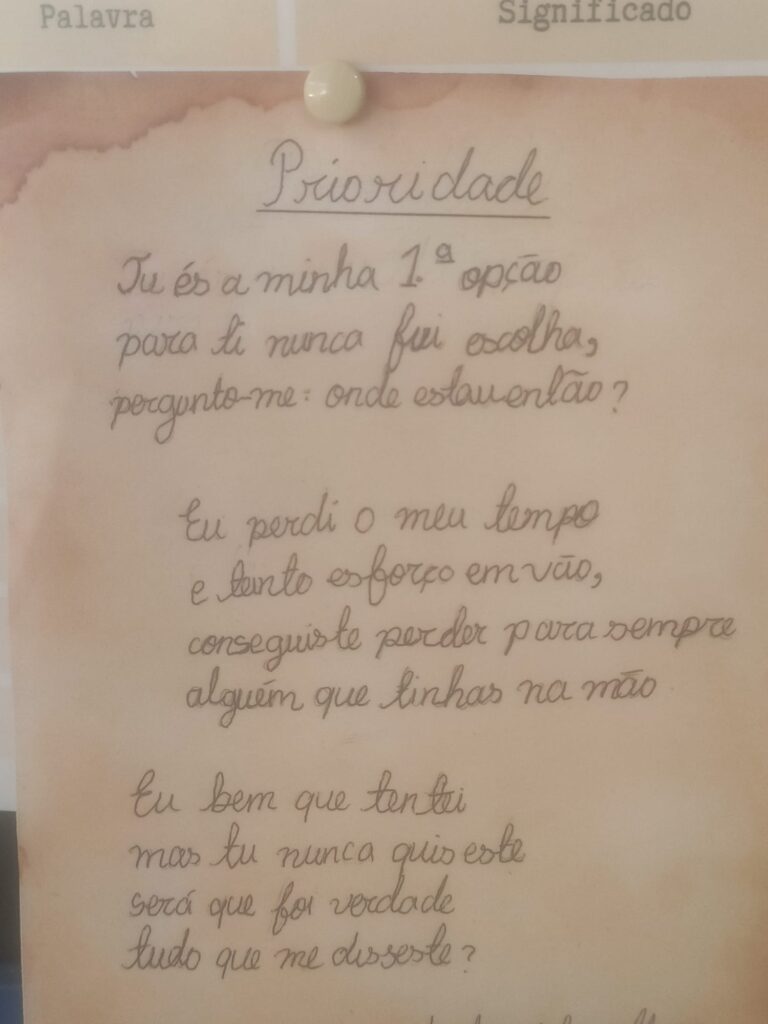 Palavra
Significado
Prioridade
Tu és a minha 1.ª opção
para ti nunca fui escolha,
pergunto-me: onde estou então?
Eu perdi o meu tempo
e tanto esforço em vão,
conseguiste perder para sempre
alguém que tinhas na mão
Eu bem que tentei
mas tu nunca quiseste
será que foi verdade
tudo que me disseste?